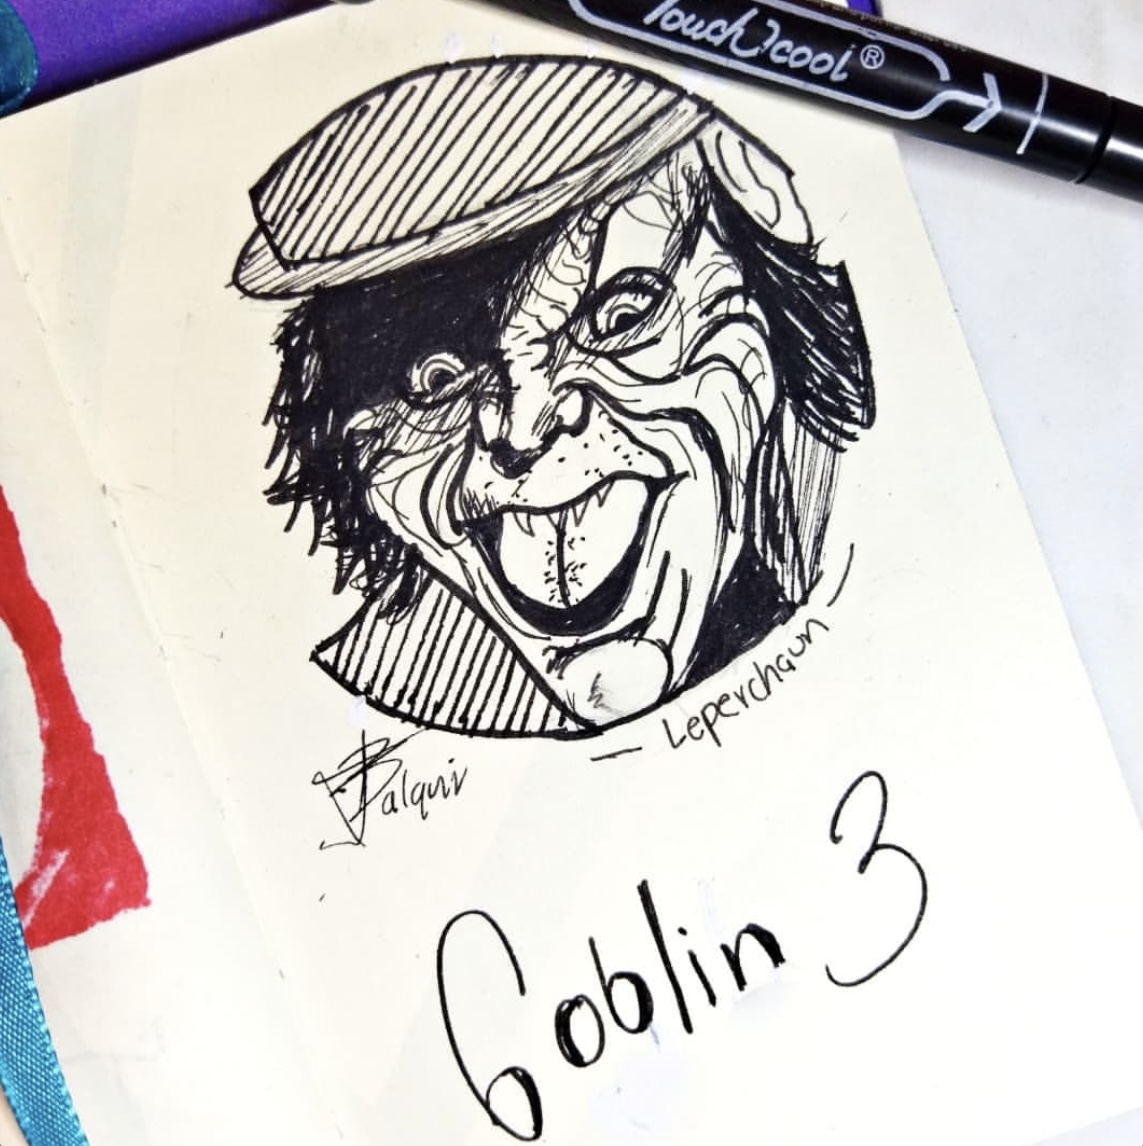 Touch?cool®
— Leperchaun —
JBalqui
Goblin 3